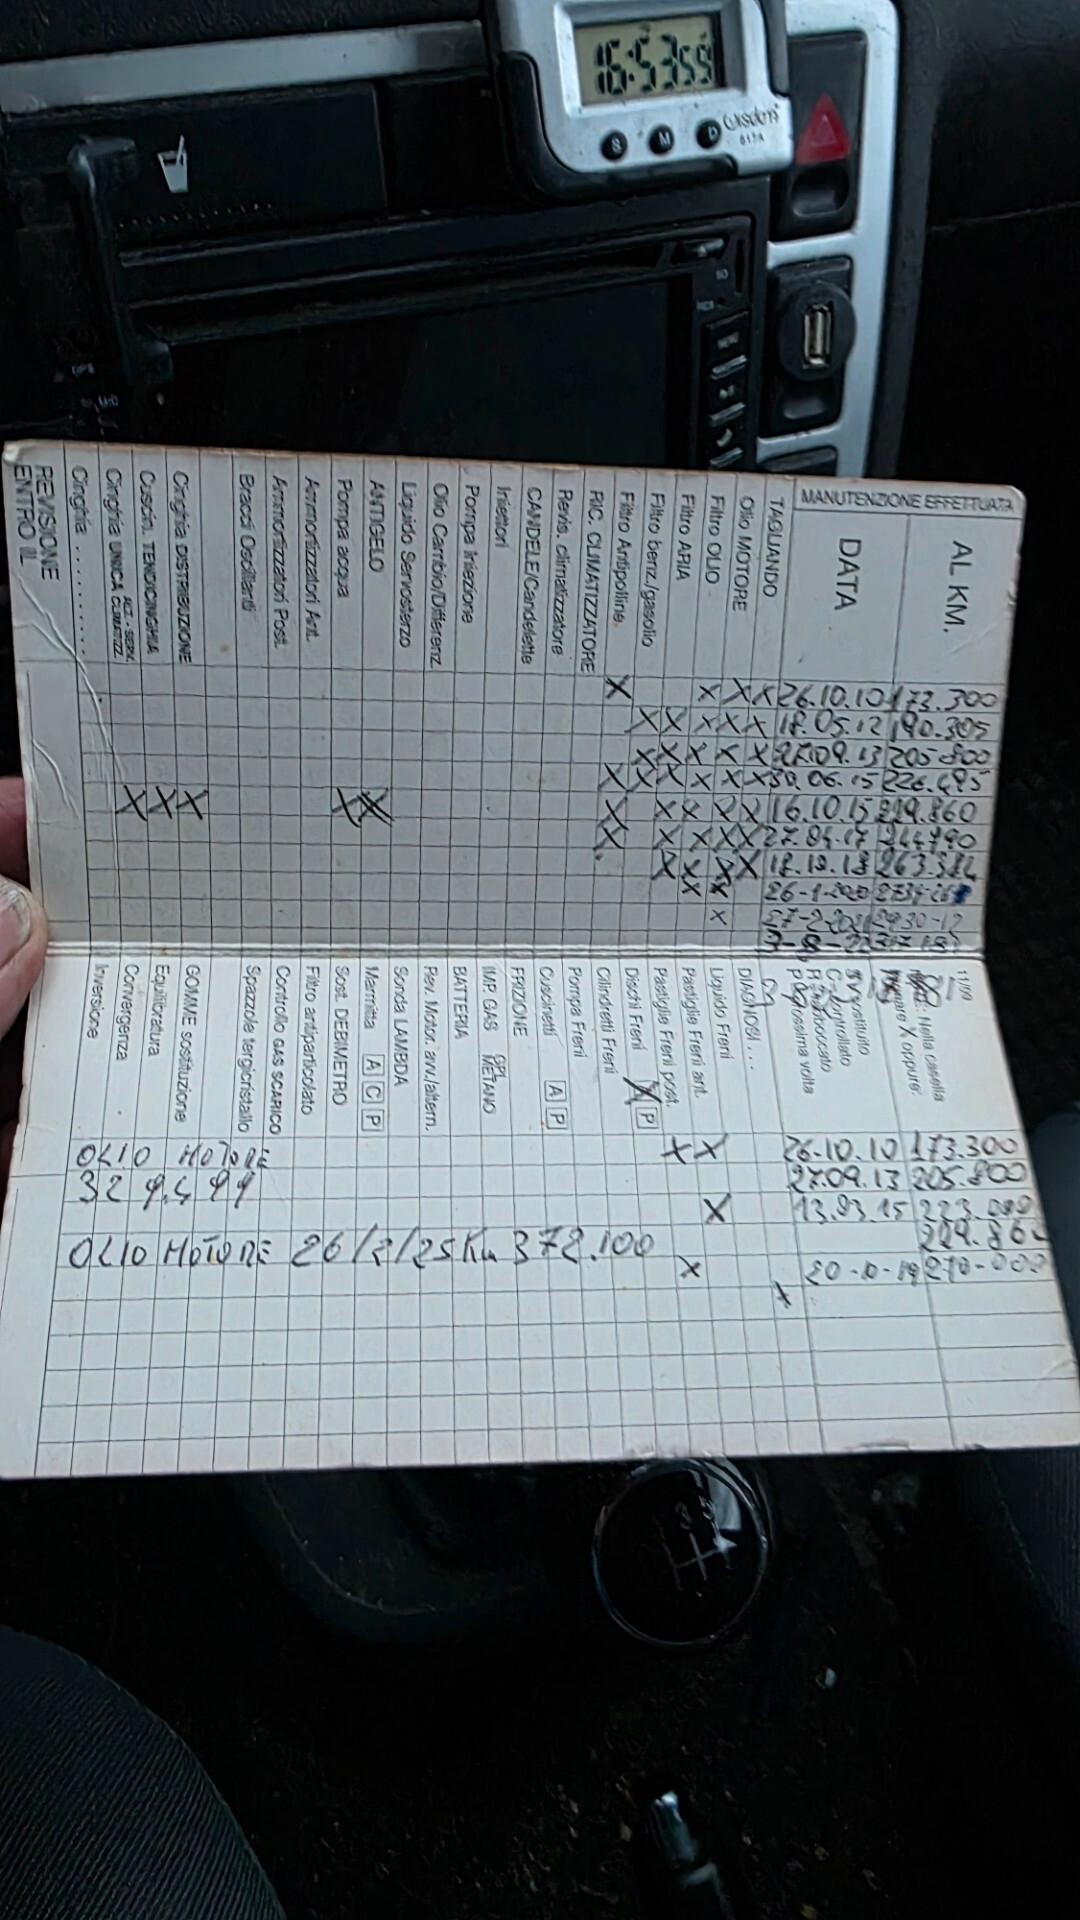 16:53 55
S M D
617A
MENU
MANUTENZIONE EFFETTUATA
AL KM.
DATA
TAGLIANDO
Olio MOTORE
Filtro OLIO
Filtro ARIA
Filtro benz./gasolio
Filtro Antipolline
RIC. CLIMATIZZATORE
Revis. climatizzatore
CANDELE/Candelette
Iniettori
Pompa Iniezione
Olio Cambio/Differenz.
Liquido Servosterzo
ANTIGELO
Pompa acqua
Ammortizzatori Ant.
Ammortizzatori Post.
Bracci Oscillanti
Cinghia DISTRIBUZIONE
Cuscin. TENDICINGHIA
Cinghia UNICA ALT. - SERV. CLIMATIZZ.
Cinghia ...........
REVISIONE
ENTRO IL
173.300 26.10.10 X X X X
190.305 18.05.12 X X X X X
205.800 27.09.13 X X X X X
226.495 30.06.15 X X X X X X
229.860 16.10.15 X X X X X X X X X X
244790 27.04.17 X X X X X X
18.10.18 X X X X X
26-1-2020 X X
X
11/09
Nella casella
X oppure:
sostituito
C = controllato
prossima volta
DIAGNOSI ...
Liquido Freni
Pastiglie Freni ant.
Pastiglie Freni post.
Dischi Freni X P
Cilindretti Freni
Pompa Freni
Cuscinetti A P
FRIZIONE
IMP. GAS GPL METANO
BATTERIA
Rev. Motor. avv./altern.
Sonda LAMBDA
Marmitta A C P
Sost. DEBIMETRO
Filtro antiparticolato
Controllo GAS SCARICO
Spazzole tergicristallo
GOMME sostituzione
Equilibratura
Convergenza
Inversione
173.300 26.10.10 X X OLIO MOTORE
205.800 27.09.13
13.03.15 X
229.860
OLIO MOTORE 26/2/25 Km 372.100
270-000 X
X